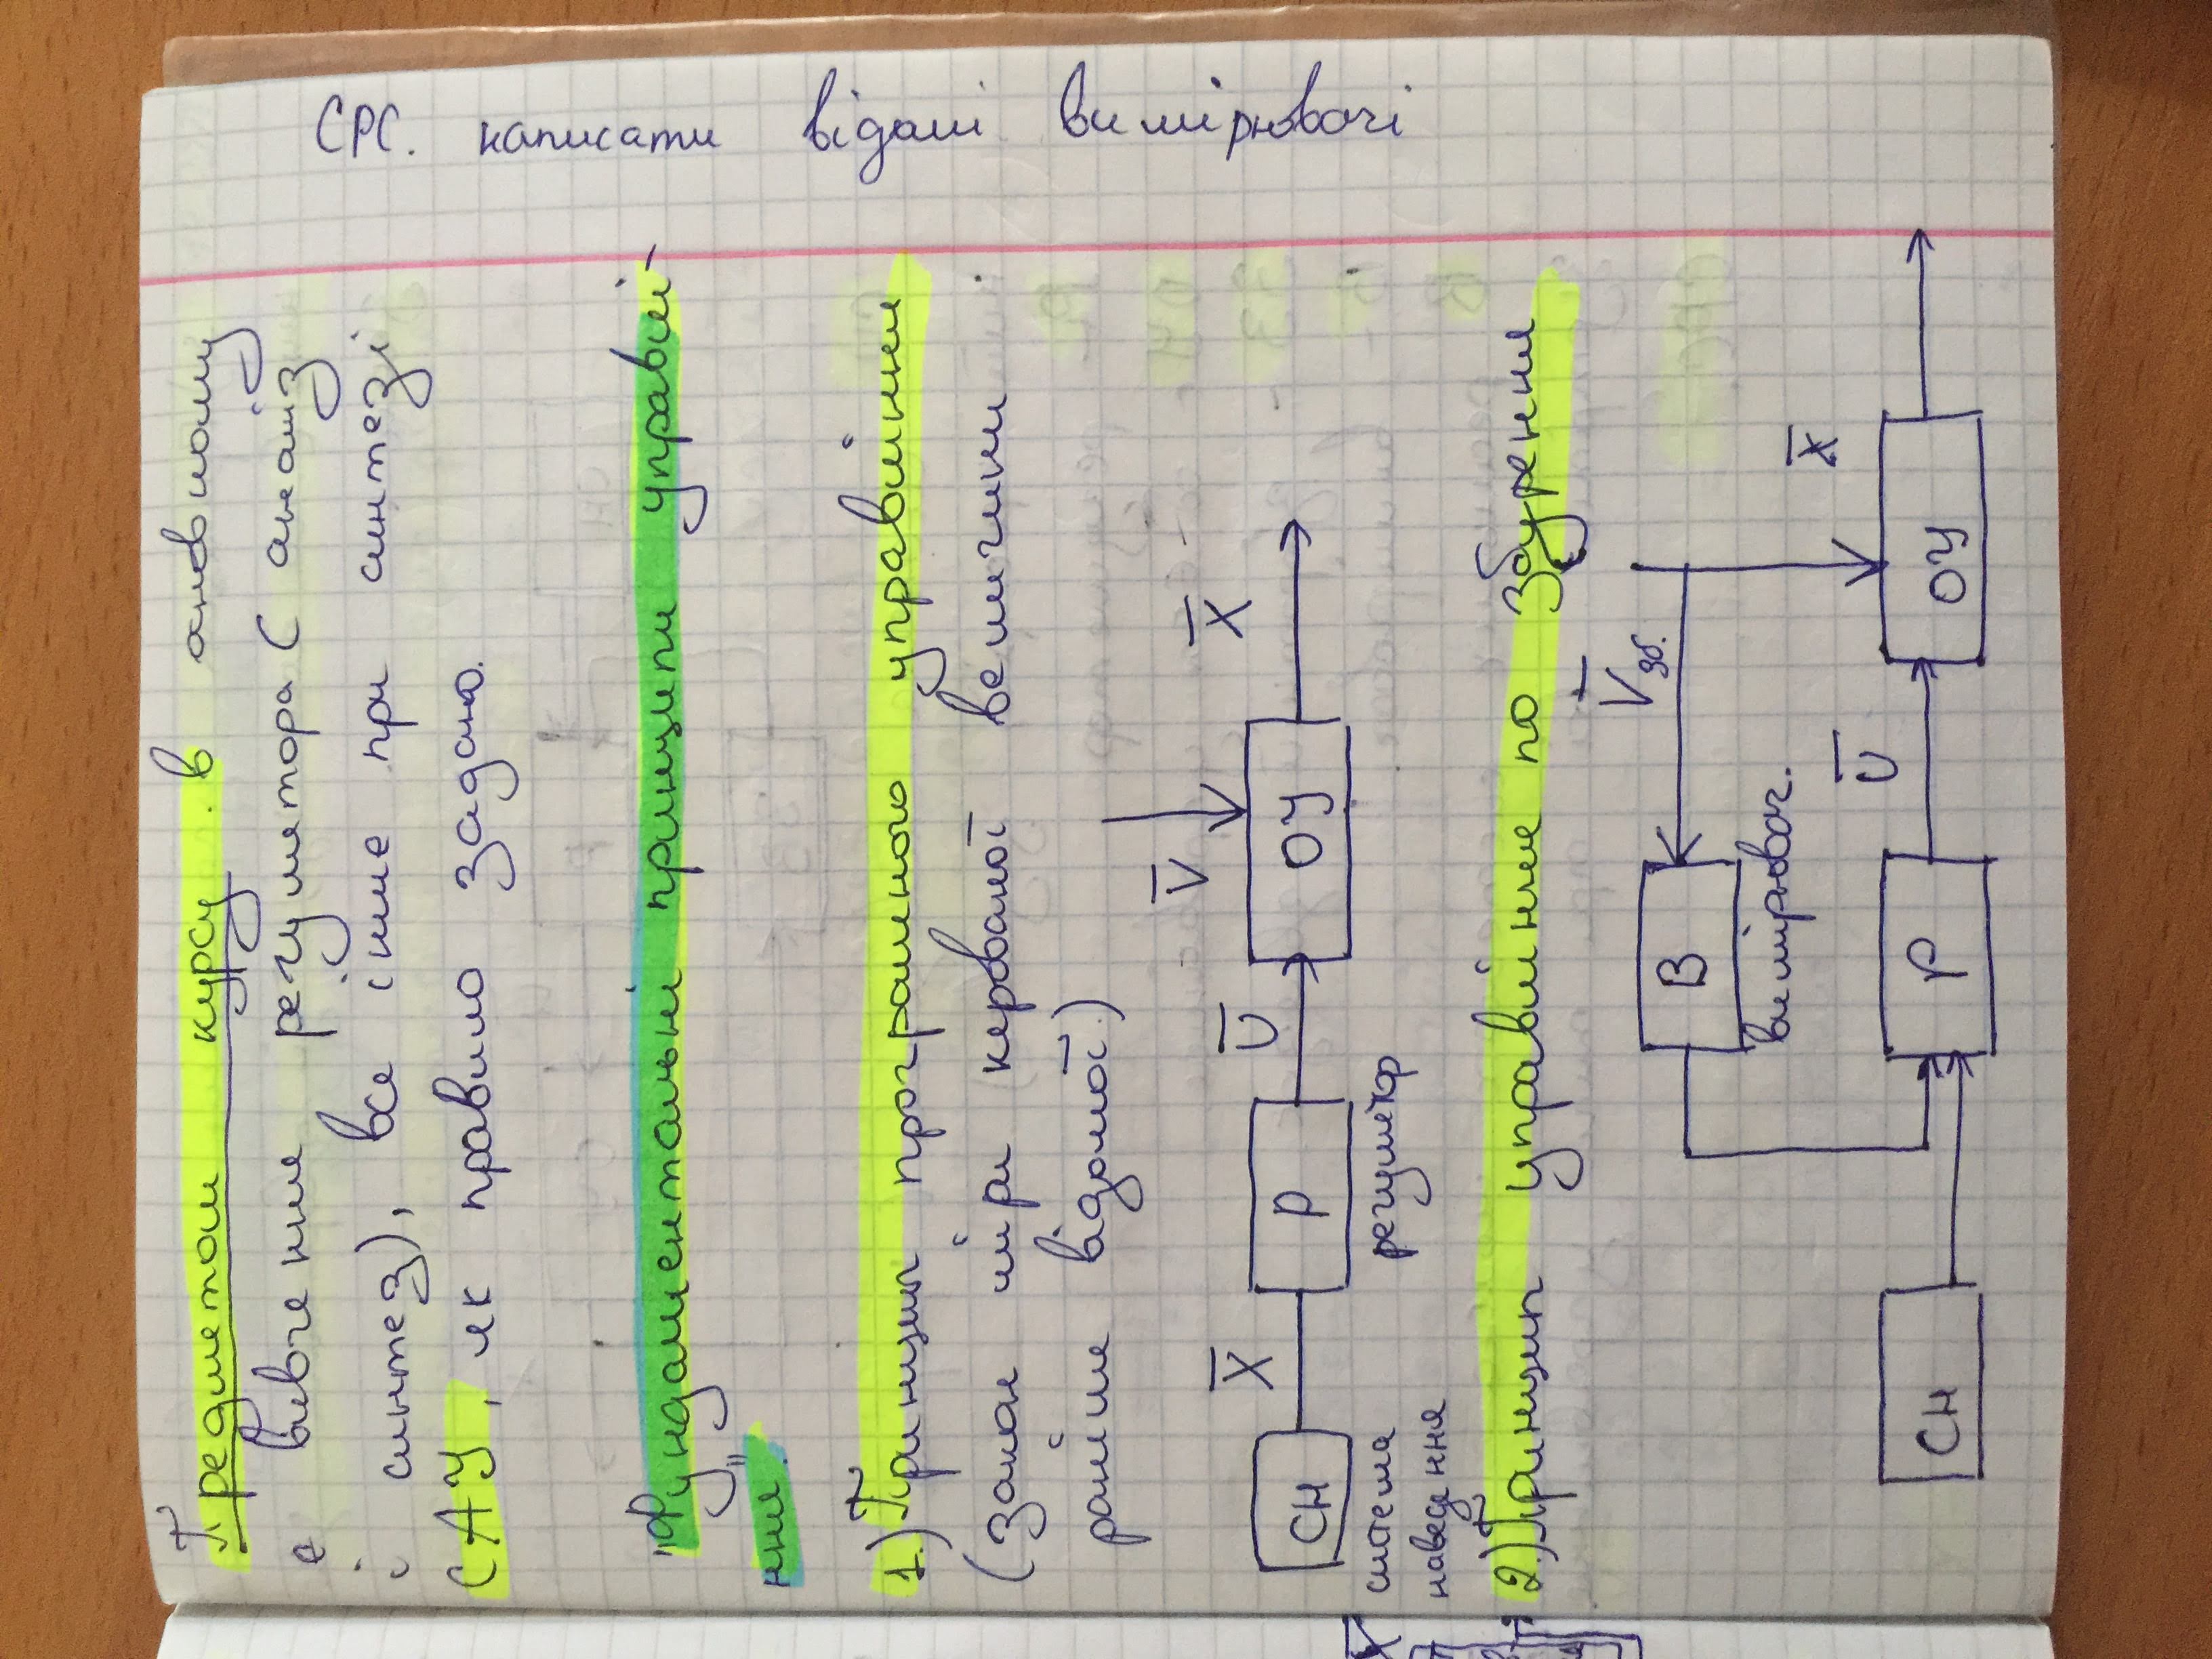 Предметом курсу в основному
є вивчення регулятора (аналіз
і синтез), все інше при синтезі
САУ, як правило задано.
"Фундаментальні принципи управлі-
ння."
1.) Принцип програмного управління
(закон міри керованої величини
раніше відомої.)
V̅
X̅ U̅ X̅
СН Р ОУ
система регулятор
наведення
2.) Принцип управління по збурення
V̅зб.
В
вимірювач.
X̅
U̅
СН Р ОУ
СРС. написати відомі вимірювачі.